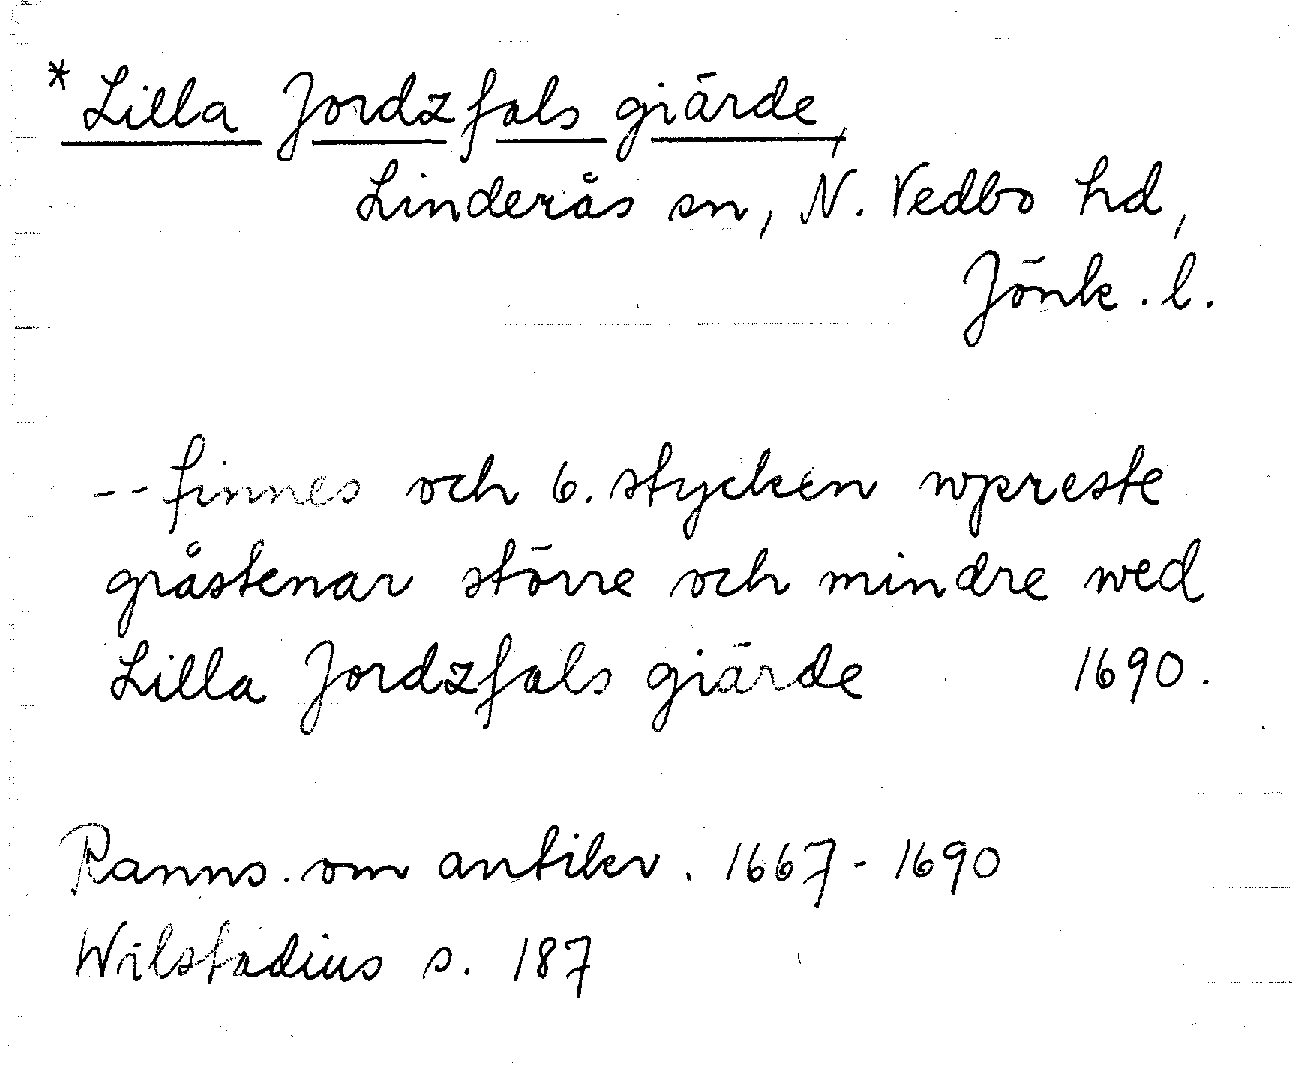 * Lilla Jordzfals giärde,
Linderås sn, N. Vedbo hd,
Jönk. l.
-- finnes och 6. stycken wpreste
gråstenar större och mindre wed
Lilla Jordzfals giärde 1690.
Ranns. om antikv. 1667-1690
Wilstadius s. 187